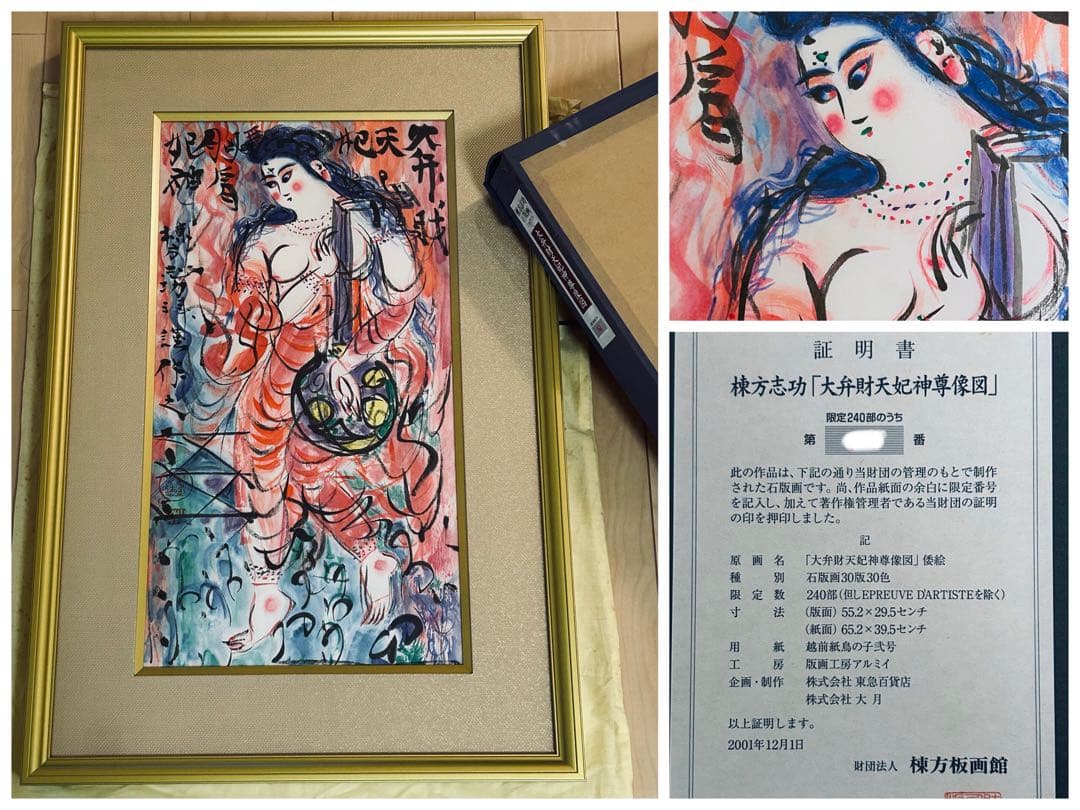 大弁財
天妃
証明書
棟方志功「大弁財天妃神尊像図」
限定240部のうち
第 番
此の作品は、下記の通り当財団の管理のもとで制作
された石版画です。尚、作品紙面の余白に限定番号
を記入し、加えて著作権管理者である当財団の証明
の印を押印しました。
記
原画名 「大弁財天妃神尊像図」倭絵
種別 石版画30版30色
限定数 240部(但しEPREUVE D'ARTISTEを除く)
寸法 (版面) 55.2×29.5センチ
(紙面) 65.2×39.5センチ
用紙 越前紙鳥の子弐号
工房 版画工房アルミイ
企画・制作 株式会社 東急百貨店
株式会社 大月
以上証明します。
2001年12月1日
財団法人 棟方板画館